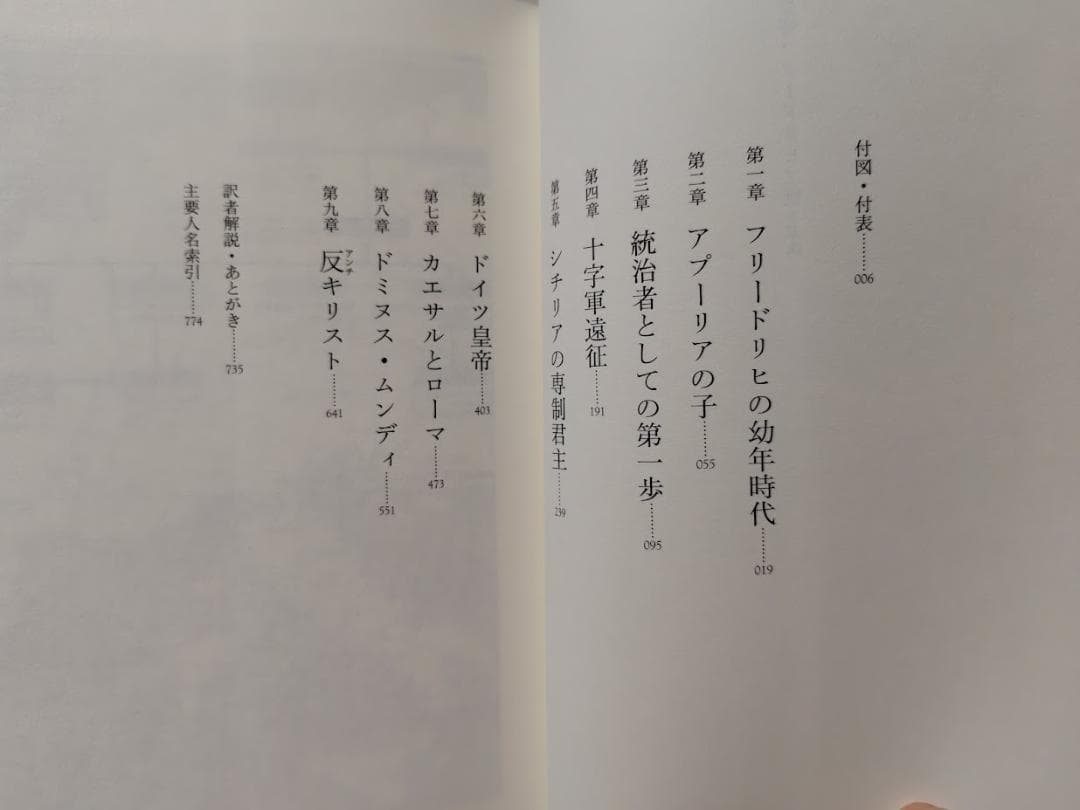 付図・付表………006
第一章 フリードリヒの幼年時代………019
第二章 アプーリアの子………055
第三章 統治者としての第一歩………095
第四章 十字軍遠征………191
第五章 シチリアの専制君主………239
第六章 ドイツ皇帝………403
第七章 カエサルとローマ………473
第八章 ドミヌス・ムンディ………551
第九章 反キリスト………641
アンチ
訳者解説・あとがき………735
主要人名索引………774